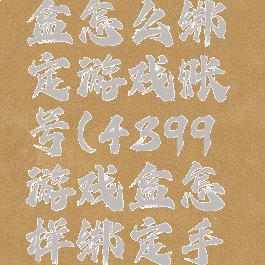 盒怎么绑
定游戏账
号(4399
游戏盒怎
样绑定手